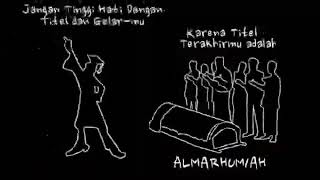 Jangan Tinggi Hati Dangan
Titel dan Gelar-mu
Karena Titel
Terakhirmu adalah
ALMARHUM/AH